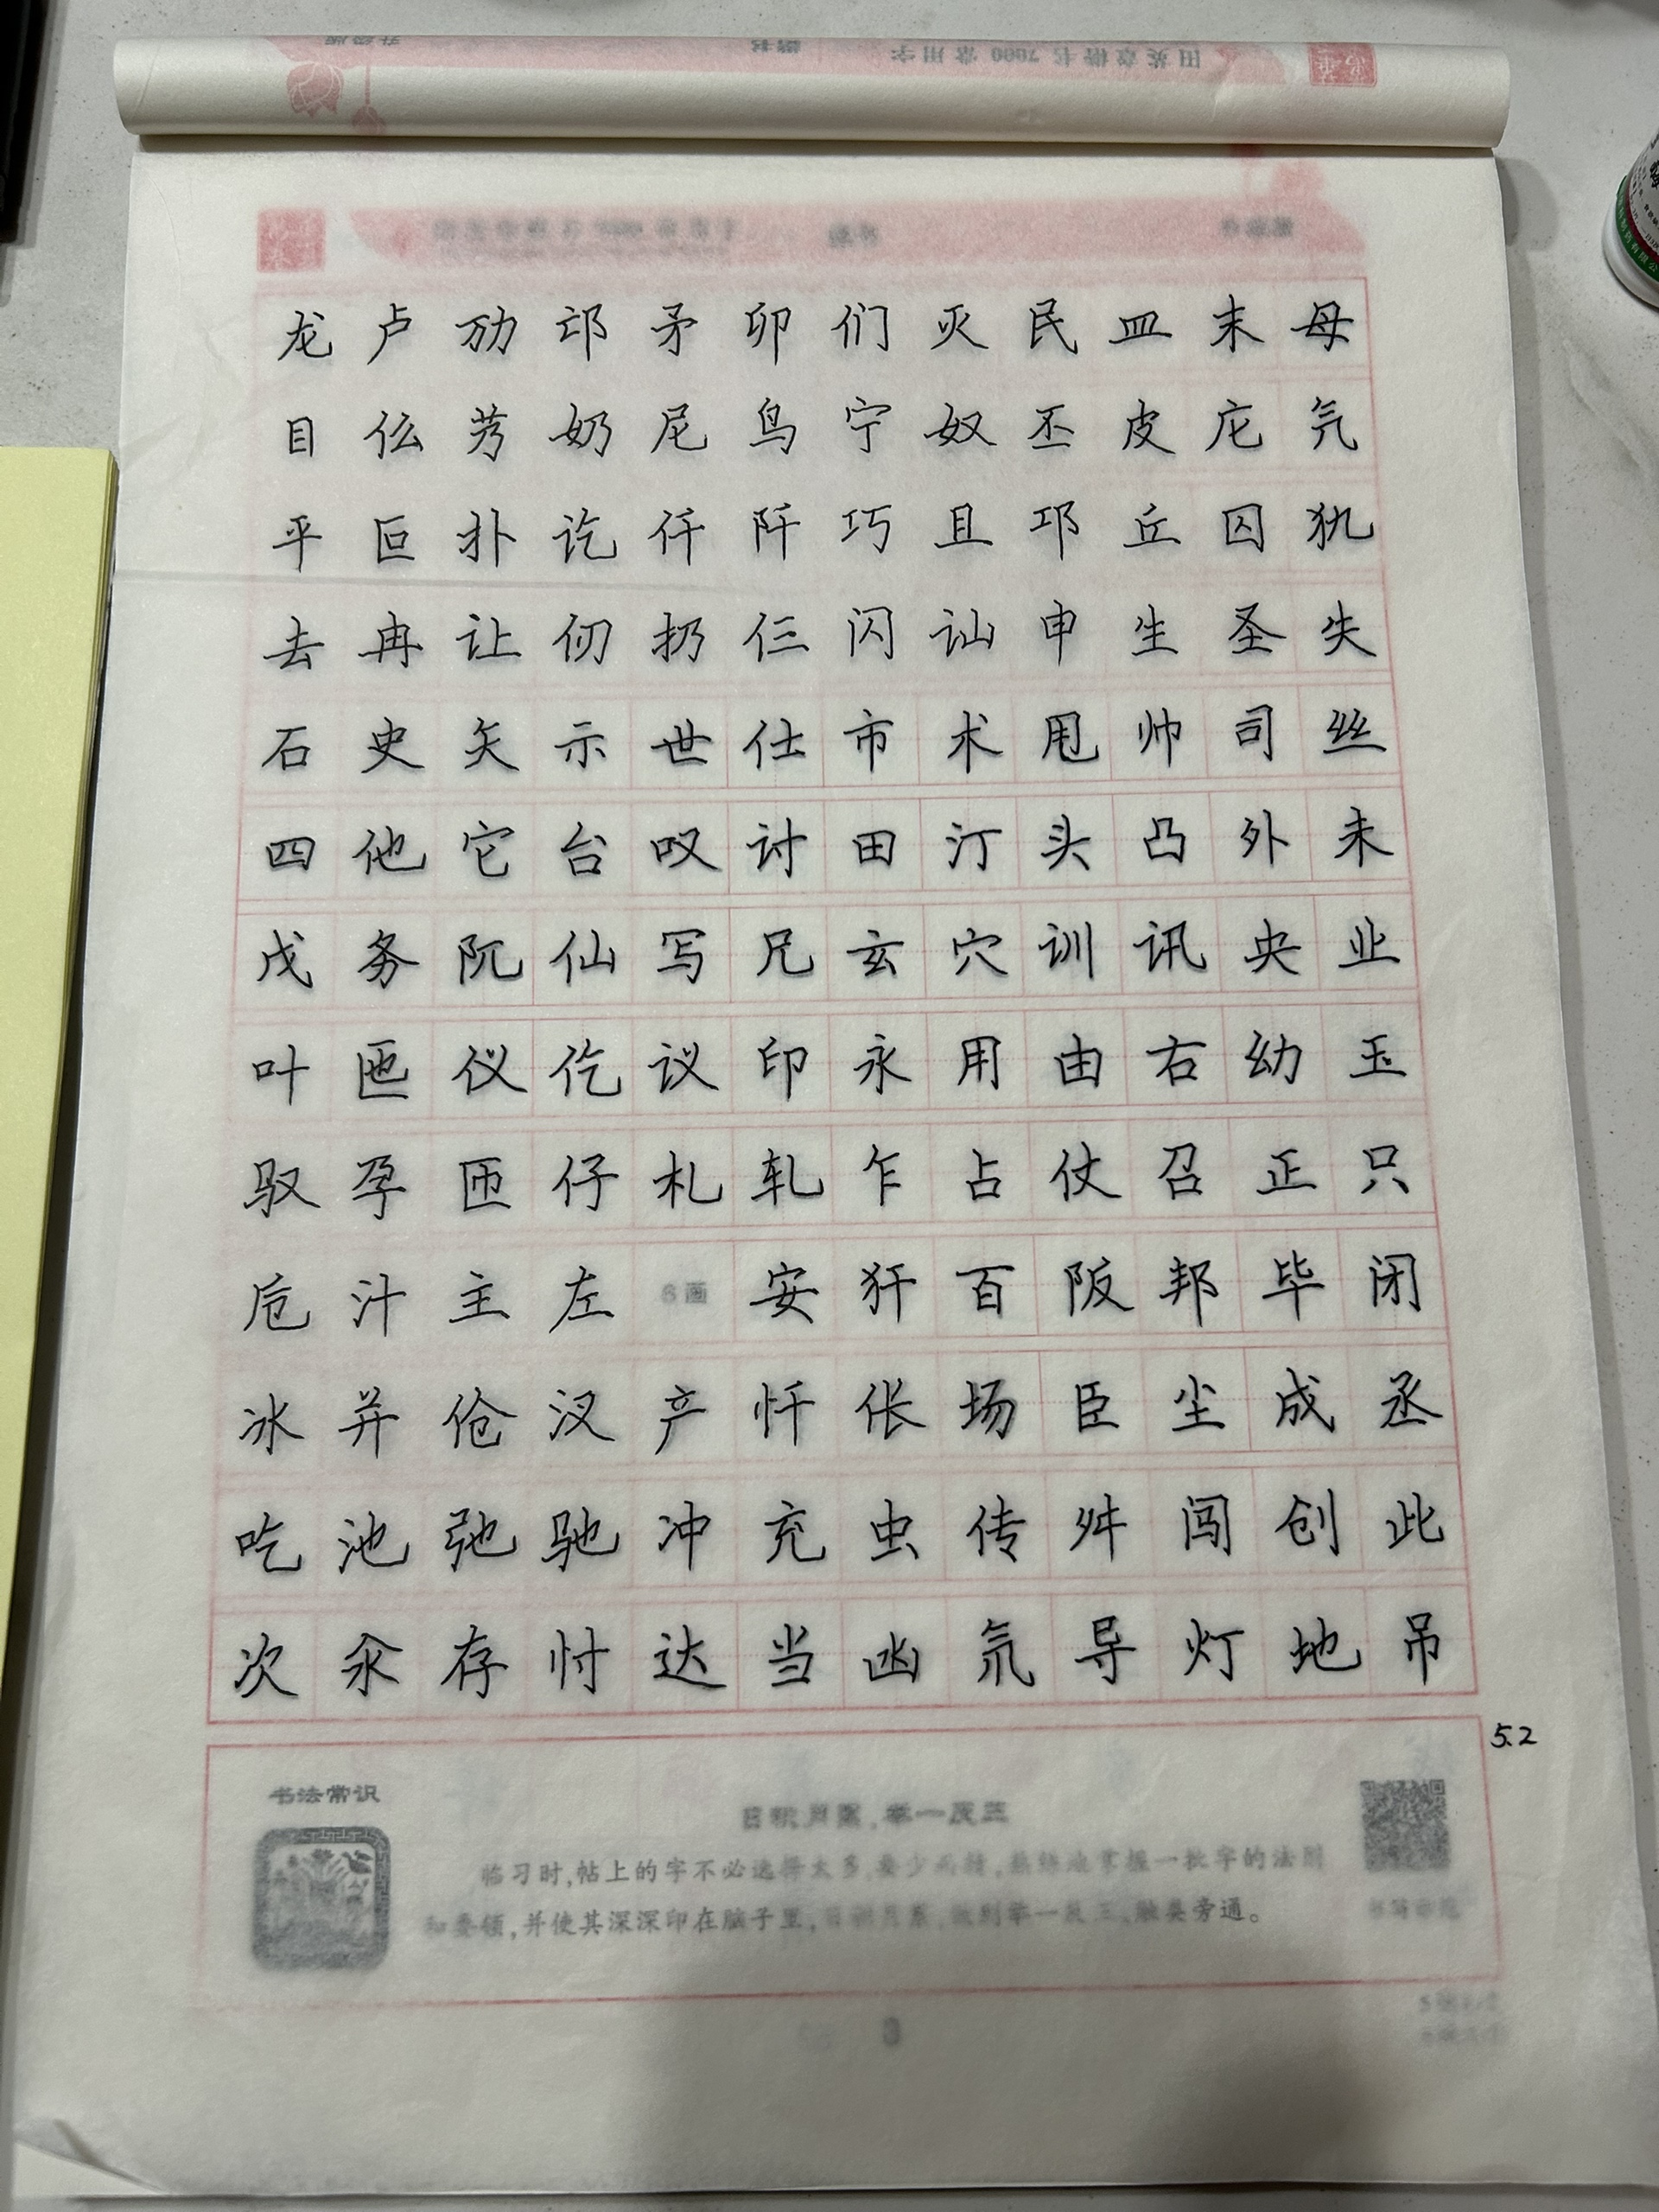 田英章楷书 7000 常用字 楷书 升级版
龙 卢 劢 邙 矛 卯 们 灭 民 皿 末 母
目 仫 艿 奶 尼 鸟 宁 奴 丕 皮 庀 氕
平 叵 扑 讫 仟 阡 巧 且 邛 丘 囚 犰
去 冉 让 仞 扔 仨 闪 讪 申 生 圣 失
石 史 矢 示 世 仕 市 术 甩 帅 司 丝
四 他 它 台 叹 讨 田 汀 头 凸 外 未
戊 务 阢 仙 写 兄 玄 穴 训 讯 央 业
叶 匜 仪 仡 议 印 永 用 由 右 幼 玉
驭 孕 匝 仔 札 轧 乍 占 仗 召 正 只
卮 汁 主 左 6画 安 犴 百 阪 邦 毕 闭
冰 并 伧 汊 产 忏 伥 场 臣 尘 成 丞
吃 池 弛 驰 冲 充 虫 传 舛 闯 创 此
次 汆 存 忖 达 当 凼 氘 导 灯 地 吊
5.2
书法常识
日积月累,举一反三
临习时,帖上的字不必选择太多,要少而精,熟练地掌握一批字的法则
和要领,并使其深深印在脑子里,日积月累,做到举一反三,触类旁通。